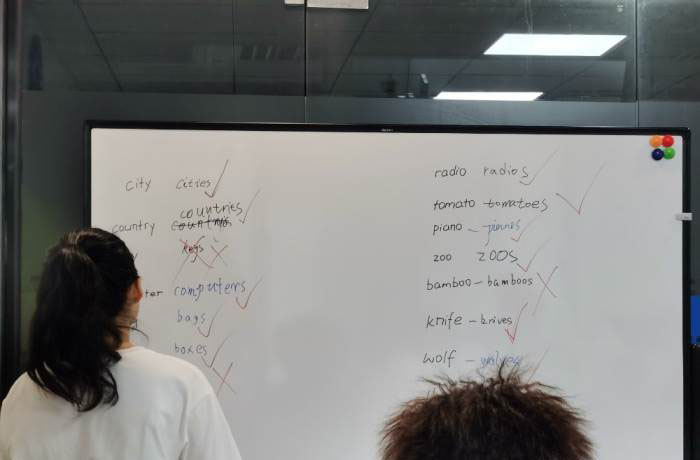 city cities
countries
country
ter computers
bags
boxes
radio radios
tomato tomatoes
piano - pianos
zoo zoos
bamboo - bamboos
knife - knives
wolf - wolves